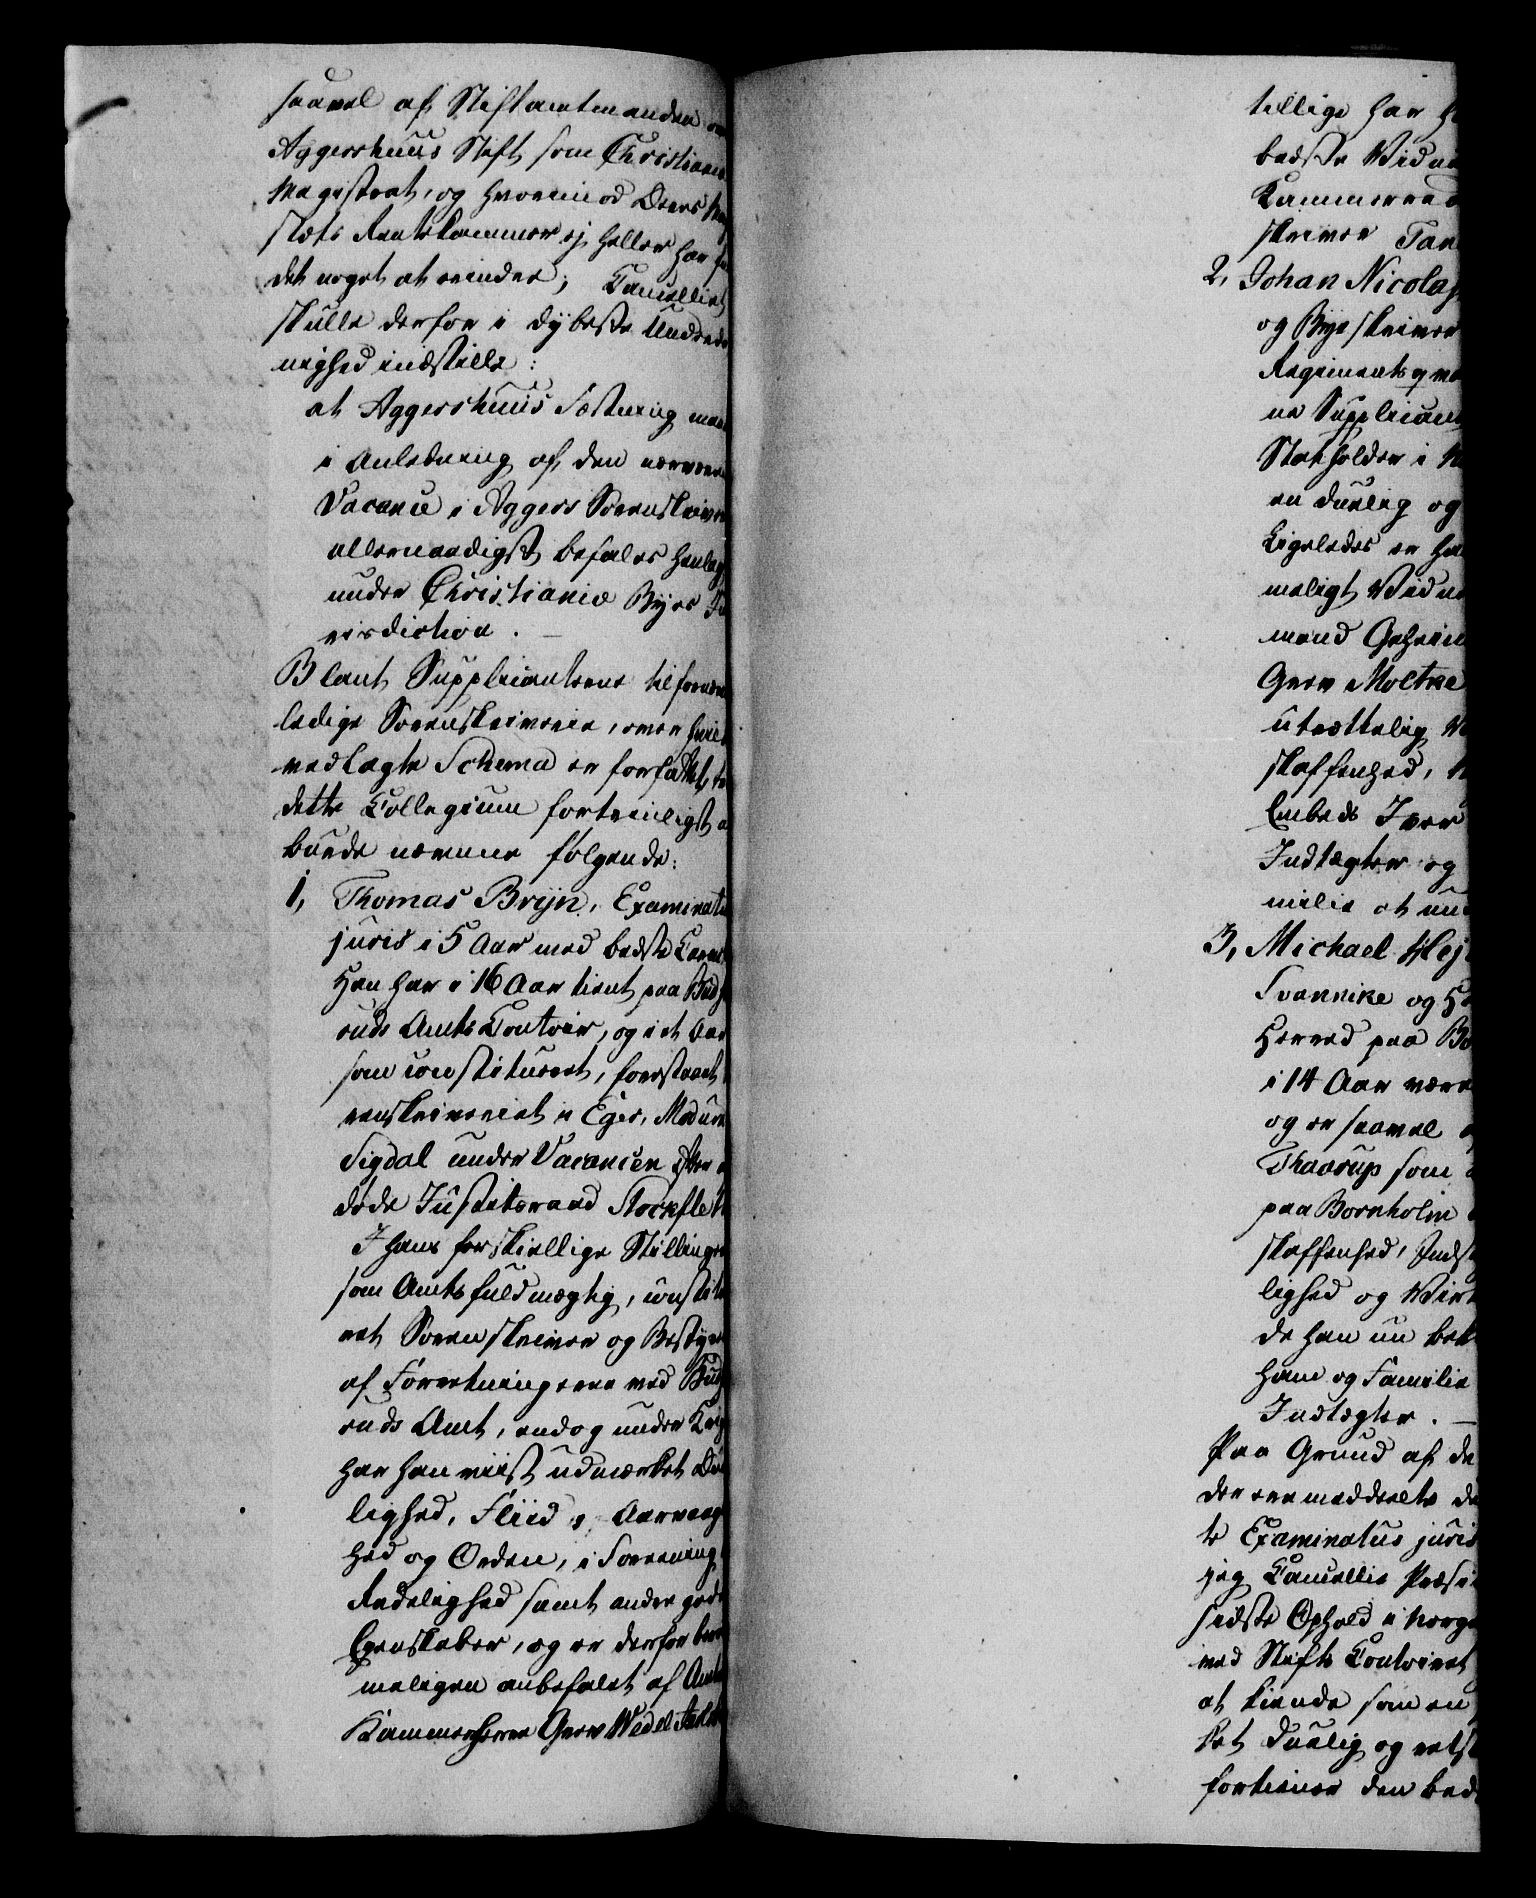 saavel af Stiftamtmanden over
Aggershuus Stift som Christiania
Magistrat, og hvorimod Deres Maj
stæts Rentekammer ej heller har fun
det noget at erindre; Cancelliet
skulle derfor i dybeste Underda
nighed indstille:
at Aggershuus Fæstning maa
i Anledning af den nærværen
Vacance i Aggers Sorenskriver
allernaadigst befales henlagt
under Christiania Byes Ju
risdiction. —
Blant Supplicanterne til foranm
ledige Sorenskriverie, over hvilk
vedlagte Schema er forfattet, tr
dette Collegium fortrinligst at
burde nævnne følgende:
1, Thomas Bryn, Examinatus
juris i 5 Aar med bedste Carac
Han har i 16 Aar tient paa Budsk
ruds Amts Contoir, og i et Aar
som constitueret, forestaaet So
renskriveriet i Eger, Modum
Sigdal under Vacancen efter af
døde Justitsraad Stockfleth
I hans forskiellige Stillinger
som Amtsfuldmægtig, constitu
ret Sorenskriver og Bestyrer
af Forretningerne ved Budsk
ruds Amt, endog under Krig
har han viist udmærket Due
lighed, Fliid, Aarvaagen
hed og Orden, i Forening
Redelighed samt andre gode
Egenskaber, og er derfor berøm
meligen anbefalet af Amtm
Kammerherre Grev Wedel Jarls
tillige har H
bedste Vidne
Kammerraad
skriver Tan
2, Johan Nicolaj
og Bye skriver
Regimentsqva
ne Supplicant
Statholder i N
en duelig og
Ligeledes er ha
meligt Vidne
mand Geheim
Grev Moltke
utrættelig V
skaffenhed, N
Embeds Iver
Indtægter og
milie at un
3, Michael Hej
Svannike og H
Herred paa Bo
i 14 Aar være
og er saavel a
Thaarup som
paa Bornholm
skaffenhed, Inds
lighed og Virk
de han nu bek
ham og Familie
Indtægter. —
Paa Grund af de
der ere meddeelte de
te Examinatus juris
jeg Cancellie Præsi
sidste Ophold i Norge
ved Stifts Contoiret
at kiende som en
ket duelig og rets
fortiener den bed